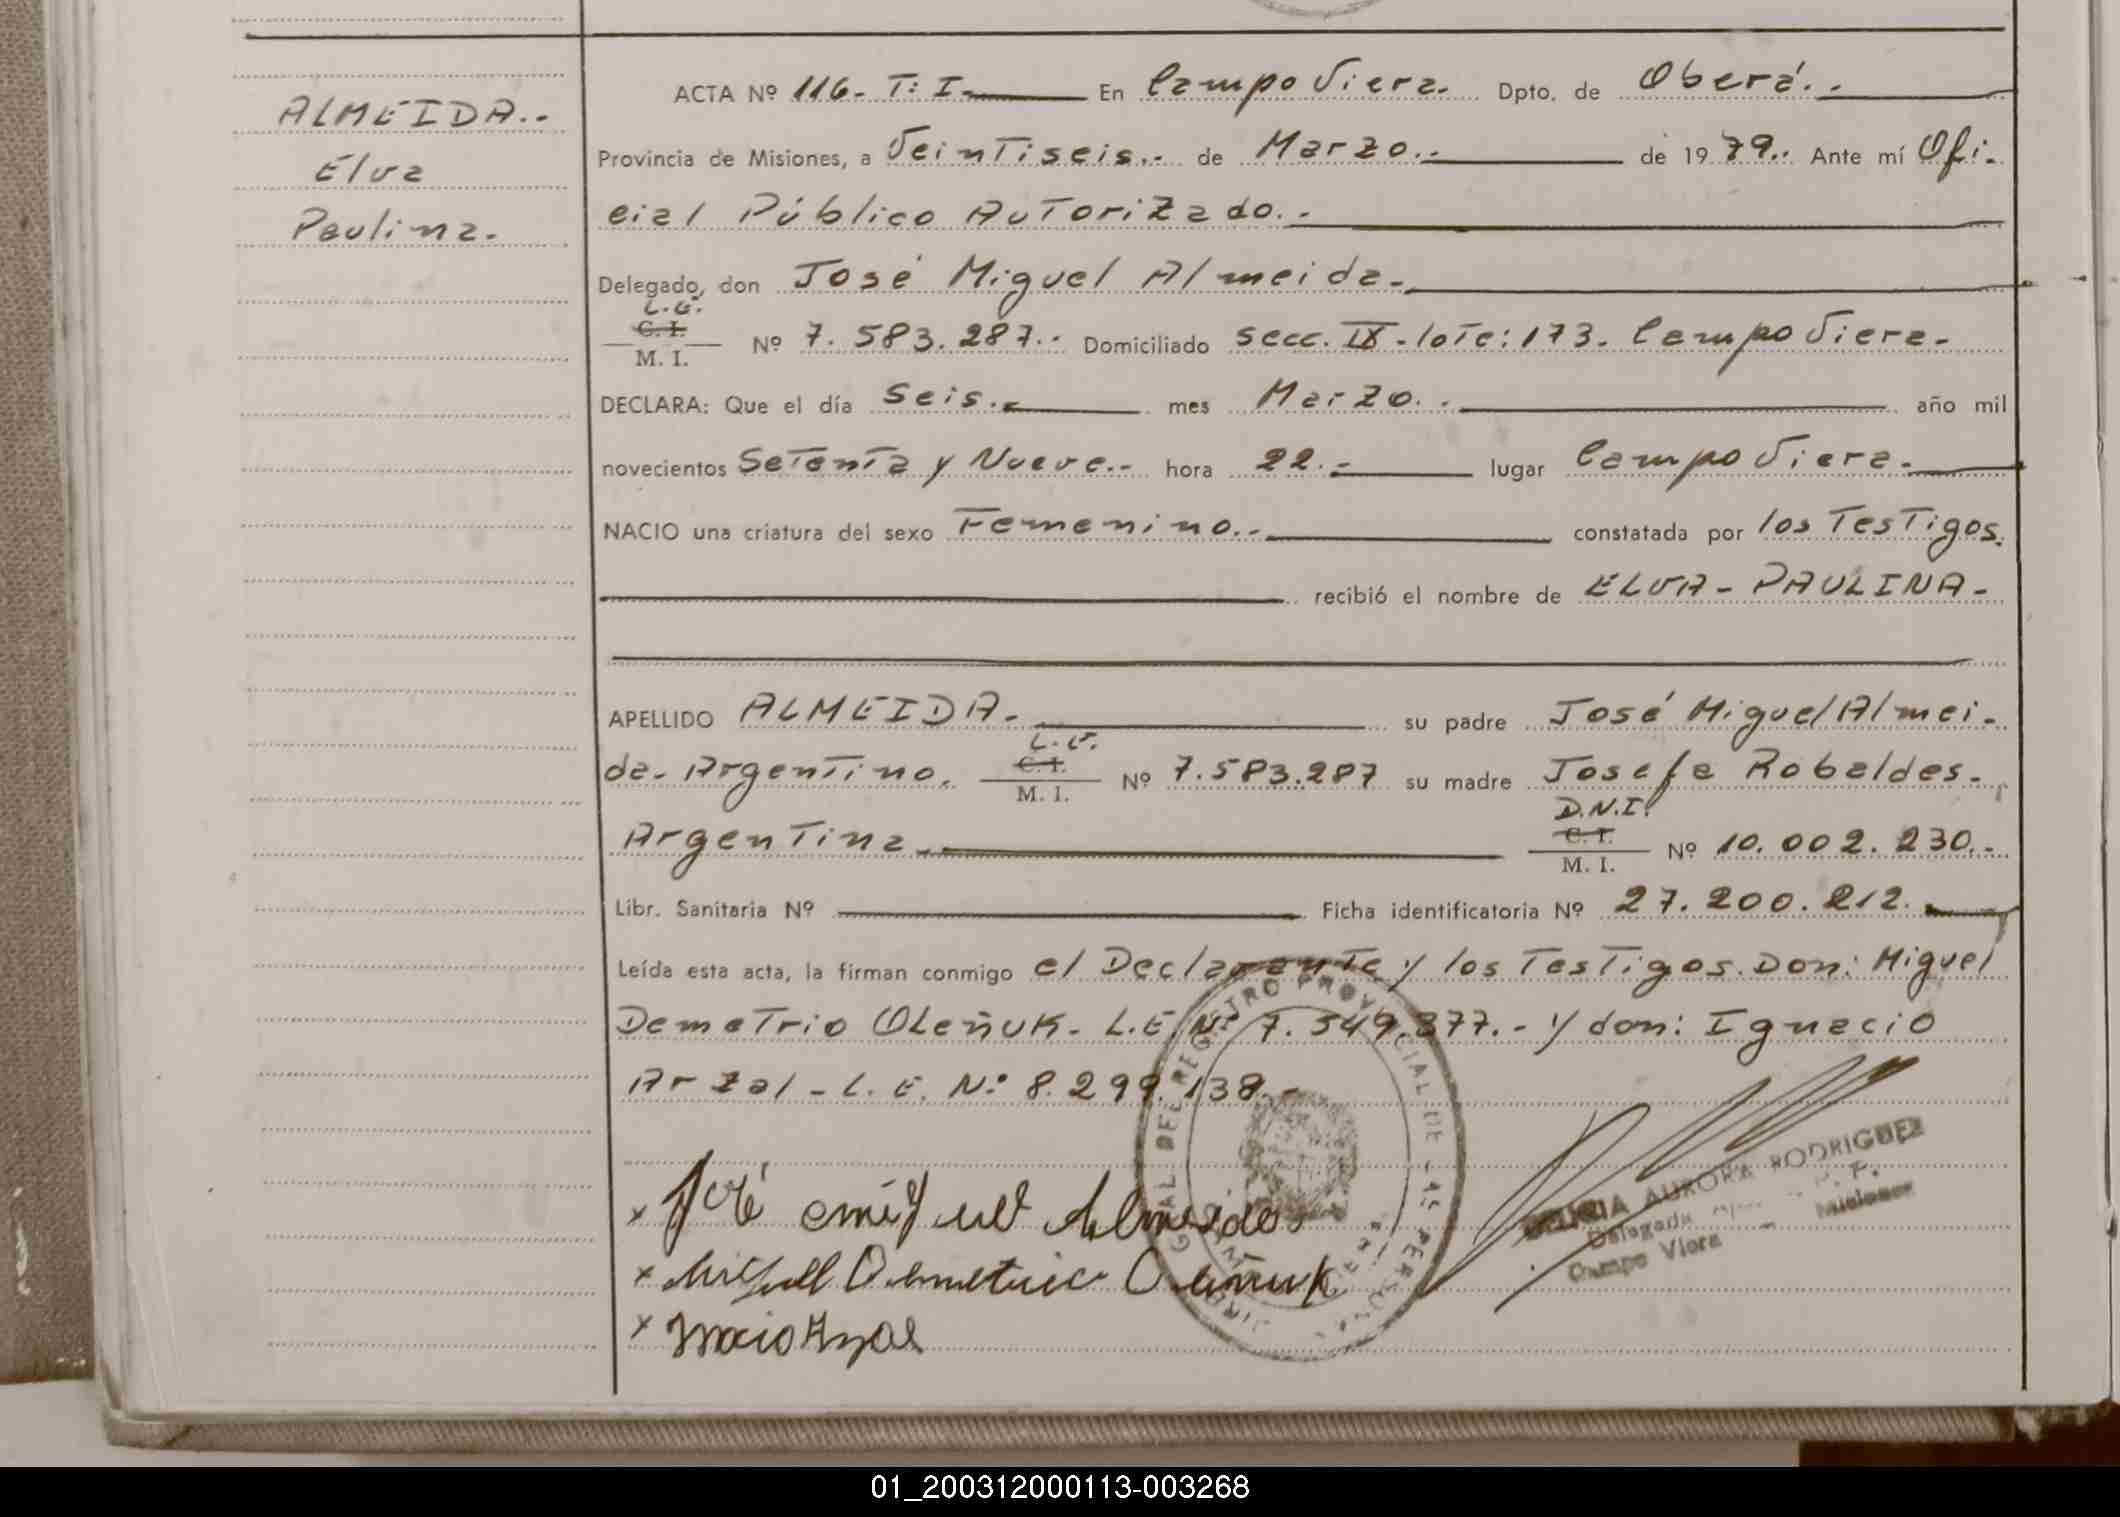 ALMEIDA..
Elva
Paulina.
ACTA Nº 116. T: I. En Campo Viera. Dpto. de Oberá..
Provincia de Misiones, a Veintiseis.- de Marzo.. de 1979.. Ante mí Ofi-
cial Público Autorizado..
Delegado, don José Miguel Almeida.
L.E.
C. I.
M. I. Nº 7.583.287.. Domiciliado Secc. IX - lote: 173. Campo Viera.
DECLARA: Que el día Seis.. mes Marzo.. año mil
novecientos Setenta y Nueve.- hora 22.- lugar Campo Viera.
NACIO una criatura del sexo Femenino.. constatada por los Testigos.
recibió el nombre de ELVA - PAULINA -
APELLIDO ALMEIDA. su padre José Miguel Almei-
da - Argentino. L.E. C. I. M. I. Nº 7.583.287 su madre Josefa Robaldes.
Argentina. D.N.I. C. I. M. I. Nº 10.002.230..
Libr. Sanitaria Nº Ficha identificatoria Nº 27.200.212.
Leída esta acta, la firman conmigo el Declarante y los Testigos. Don: Miguel
Demetrio Oleñuk - L.E. Nº 7.549.377.- y don: Ignacio
Arzal - L.E. Nº 8.299.138.-
DEL REGISTRO PROVINCIAL DE LAS PERSONAS
x José Miguel Almeida
x Miguel Demetrio Oleñuk
x
AURORA RODRIGUEZ
Delegada
Campo Viera Misiones
01_200312000113-003268